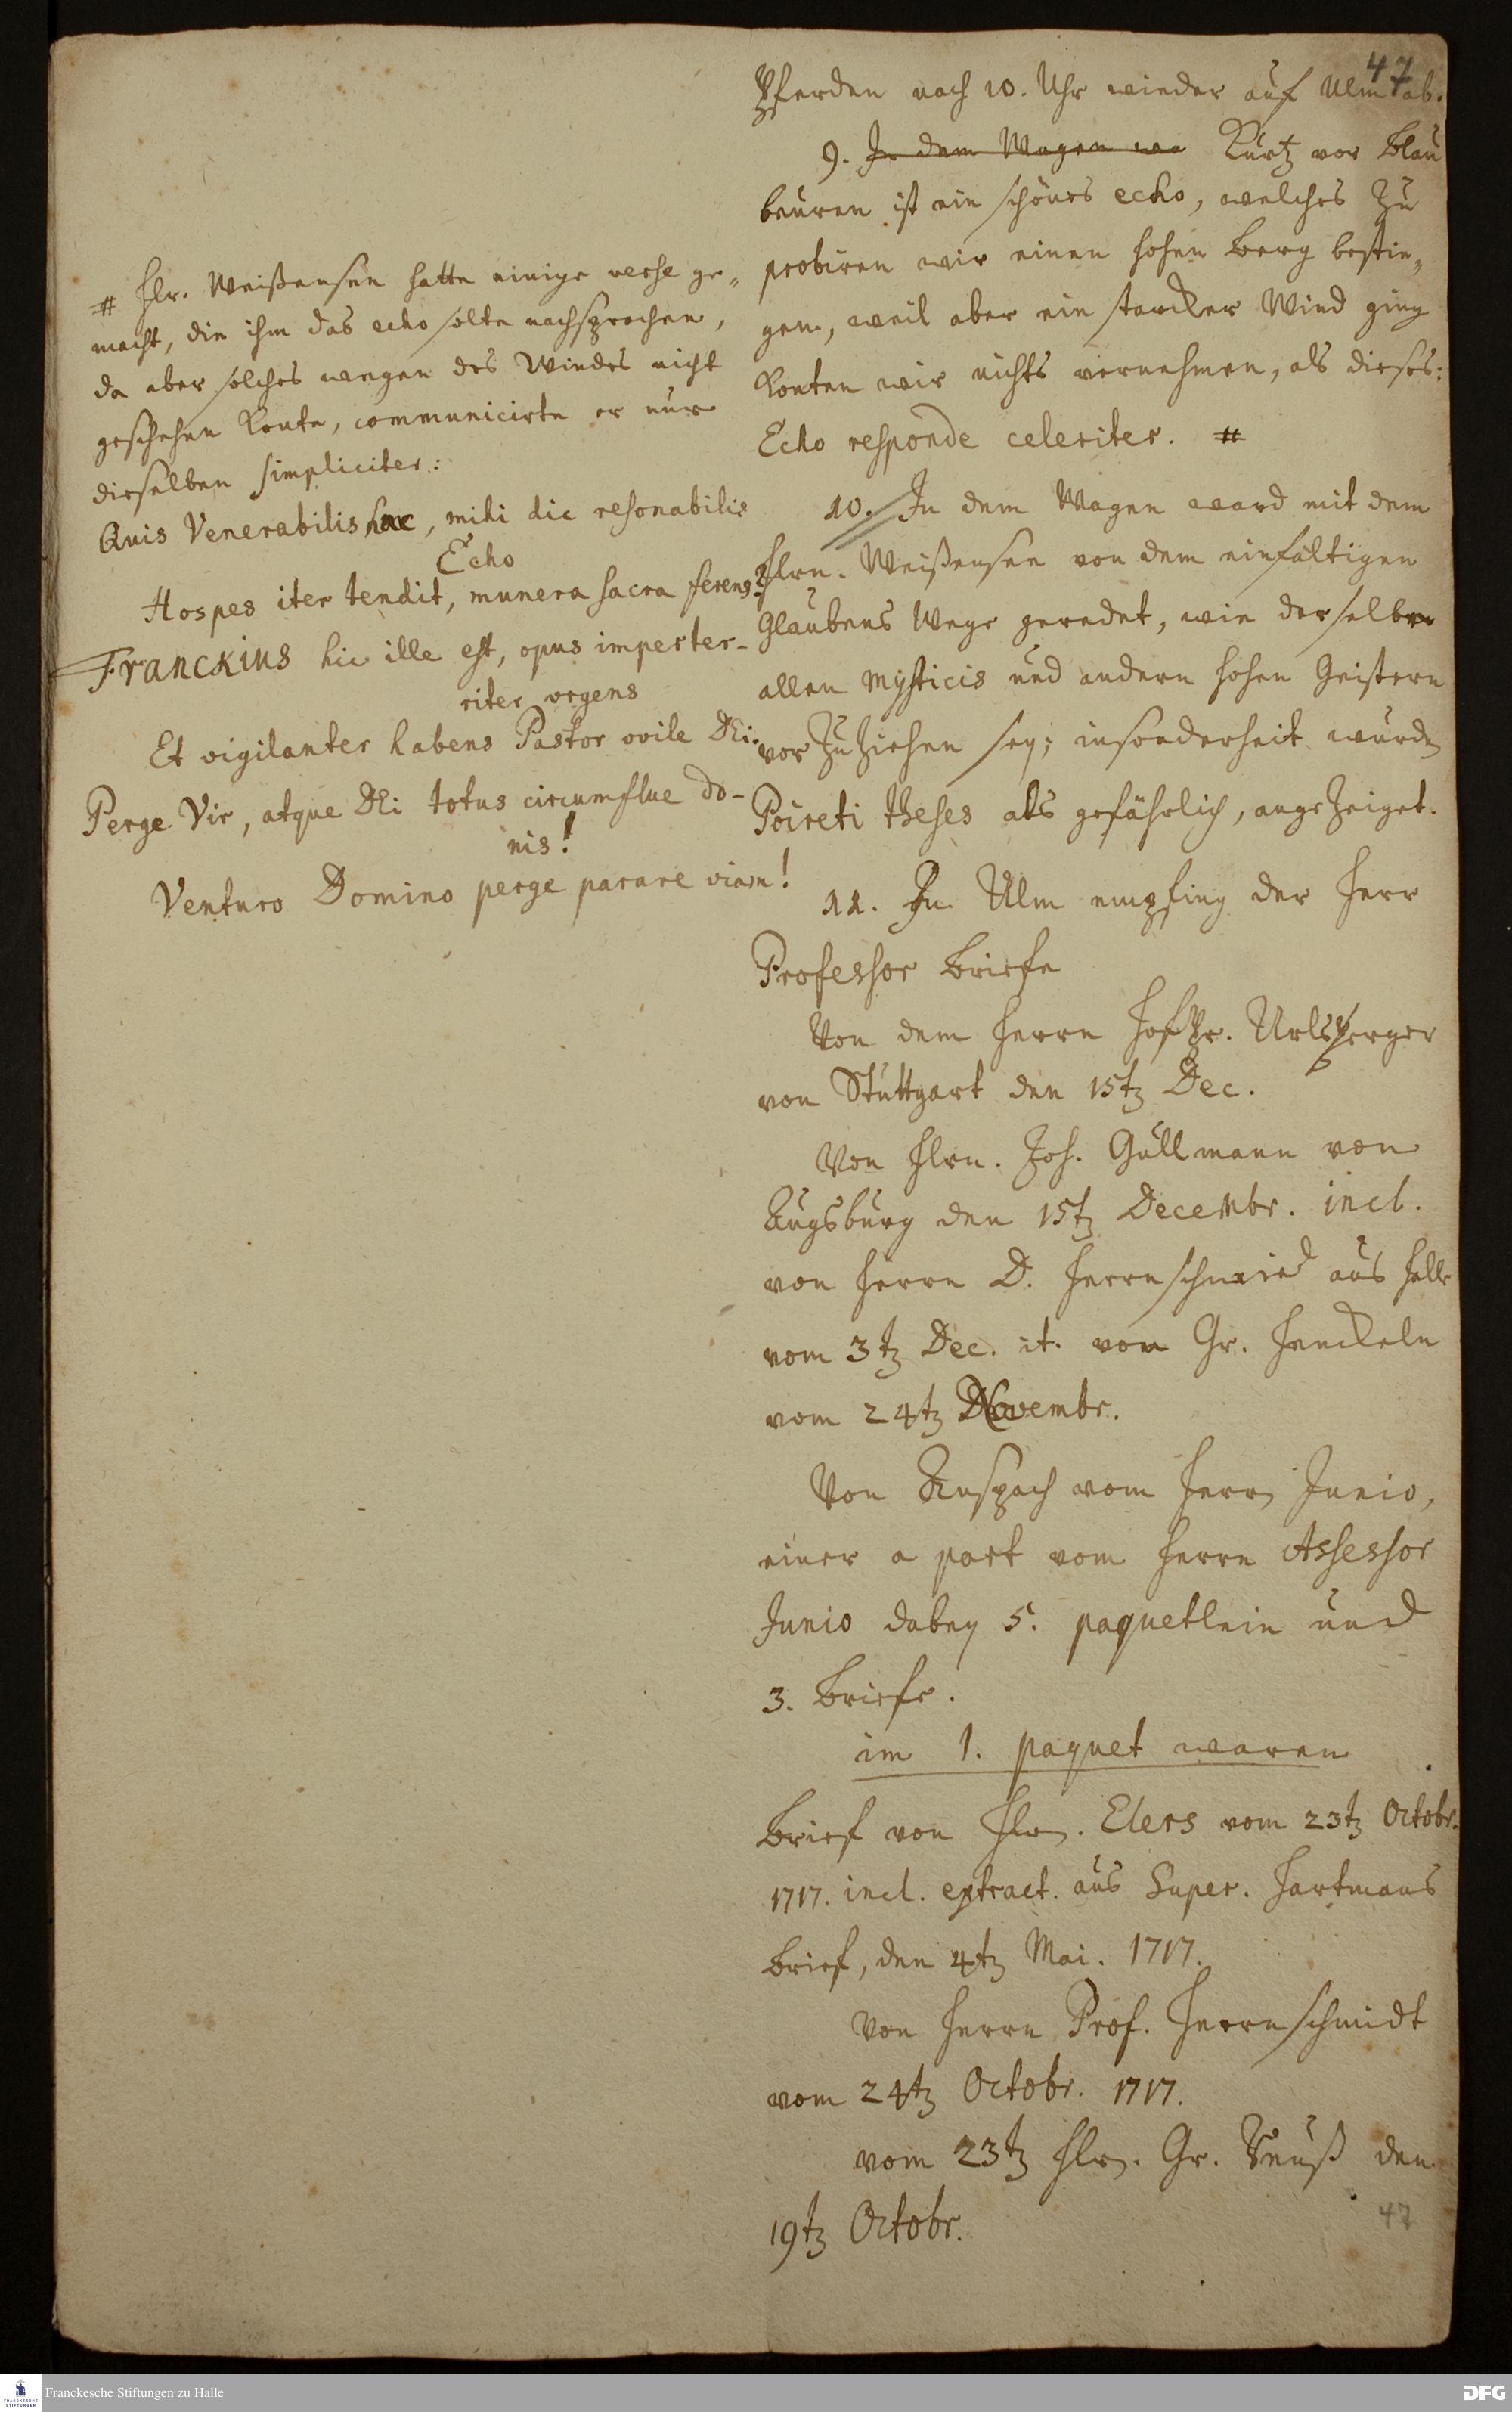 47
Pferden nach 10. Uhr wieder auf Ulm ab.
9. In dem Wagen wa Kurtz vor Blau
beuren ist ein schönes echo, welches zu
probiren wir einen hohen Berg bestie„
gen, weil aber ein starcker Wind ging
konten wir nichts vernehmen, als dieses:
Echo responde celeriter. #
10. In dem Wagen ward mit dem
Hrn. Weißensee von dem einfältigen
Glaubens Wege geredet, wie derselbe
allen Mysticis und andern hohen Geistern
vorzuziehen sey; insonderheit wurden
Poireti theses als gefährlich, angezeiget.
11. In Ulm empfing der Herr
Professor Briefe
Von dem Herrn Hofpr. Urlsperger
von Stuttgart den 15tz Dec.
Von Hrn. Joh. Gullmann von
Augsburg den 15tz Decembr. incl.
von Herrn D. Herrnschmied aus Halle
vom 3tz Dec. it. von Gr. Henckeln
vom 24tz Novembr.
Von Anspach vom Herrn Junio,
einer a part vom Herrn Assessor
Junio dabey 5. paquetlein und
3. Briefe.
im 1. paquet waren
Brief von Hrn. Elers vom 23tz Octobr.
1717. incl. extract. aus Super. Hartmans
Brief, den 4tz Mai. 1717.
Von Herrn Prof. Herrnschmidt
vom 24tz Octobr. 1717.
vom 23tz Hrn. Gr. Reuß den
19tz Octobr.
47
# Hr. Weißensee hatte einige verse ge„
macht, die ihm das echo solte nachsprechen,
da aber solches wegen des Windes nicht
geschehen konte, communicirte er nur
dieselben simpliciter:
Quis Venerabilis hac, mihi dic resonabilis
Echo
Hospes iter tendit, munera sacra ferens?
Franckius hic ille est, opus imperter-
riter urgens
Et vigilanter habens Pastor ovile DEi.
Perge Vir, atque DEi totus circumflue do-
nis!
Venturo Domino perge parare viam!
Franckesche Stiftungen zu Halle
DFG